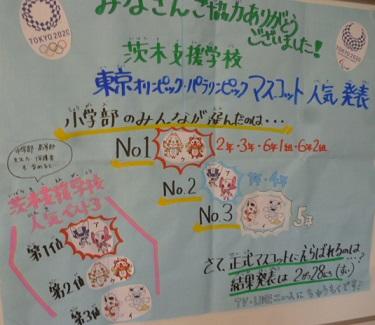 みなさんご協力ありがとう
ございました!
TOKYO 2020
TOKYO 2020
茨木支援学校
東京オリンピック・パラリンピック マスコット 人気 発表
小学部のみんなが選んだのは…
No.1
2年・3年・6年1組・6年2組
No.2
1年・4年
No.3
5年
小学部 高等部
茨木支援学校
人気 No.3
第1位
ア
第2位
第3位
イ
さて、正式マスコットにえらばれるのは、…?
結果発表は 2月28日(水)